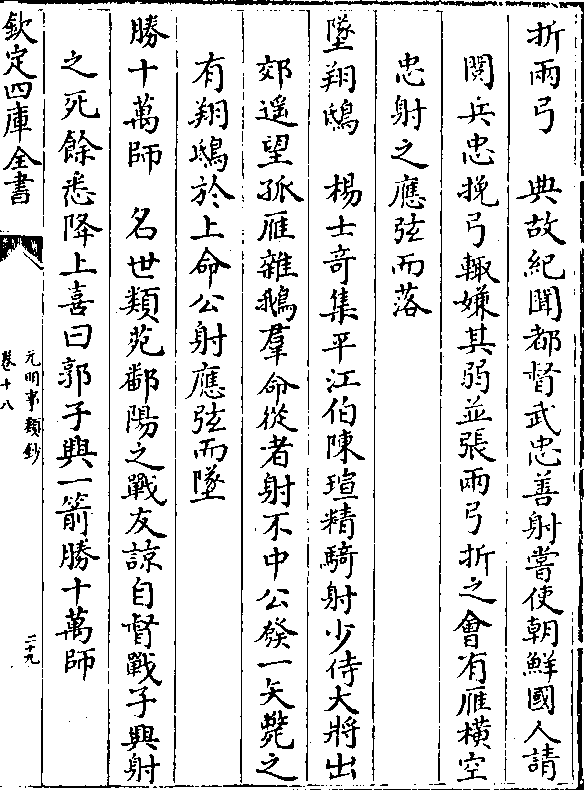 折兩弓　典故紀聞都督武忠善射嘗使朝鮮國人請
閱兵忠挽弓輙嫌其弱並張兩弓折之會有雁橫空
忠射之應弦而落
墜翔鴟　楊士竒集平江伯陳瑄精騎射少侍大將出
郊遥望孤雁雜鵝羣命從者射不中公發一矢斃之
有翔鴟於上命公射應弦而墜
勝十萬師　名世類苑鄱陽之戰友諒自督戰子興射
之死餘悉降上喜曰郭子興一箭勝十萬師
欽定四庫全書
元明事類鈔
卷十八
二十九